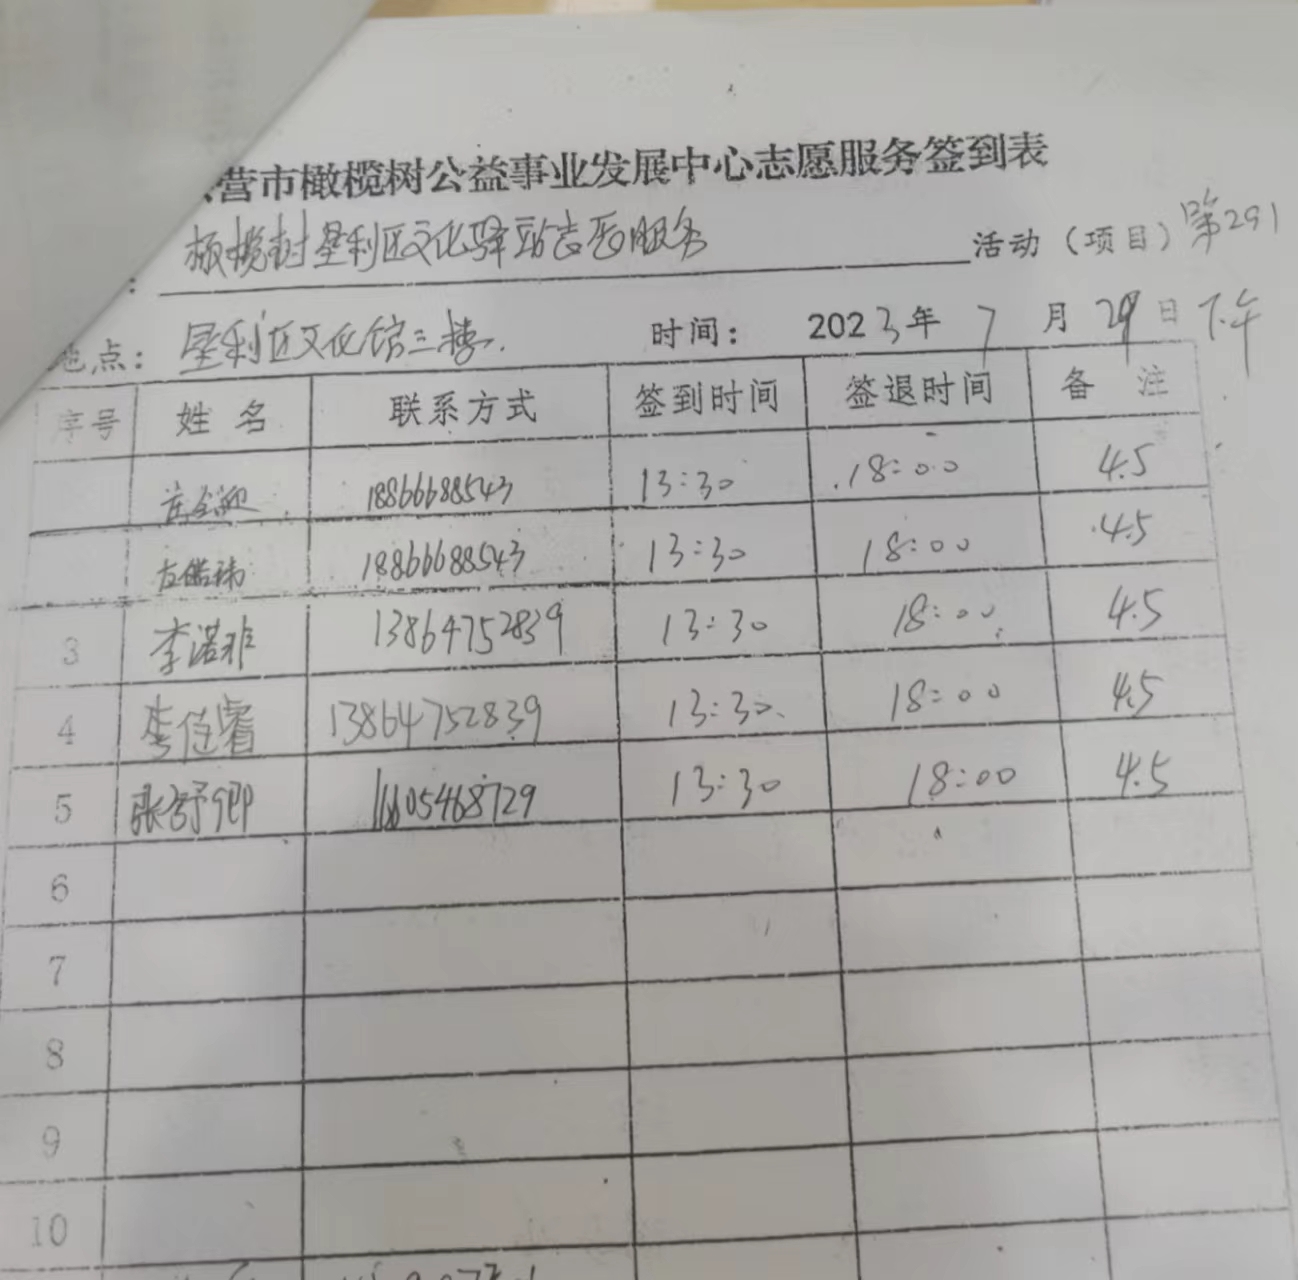 营市橄榄树公益事业发展中心志愿服务签到表
: 橄榄树垦利区文化驿站志愿服务 活动（项目）第291
地点: 垦利区文化馆三楼. 时间: 2023年7月29日下午
序号 姓名 联系方式 签到时间 签退时间 备注
18866688543 13:30 18:00 4.5
18866688543 13:30 18:00 4.5
3 李诺非 13864752839 13:30 18:00 4.5
4 李 睿 13864752839 13:30 18:00 4.5
5 张舒 05468729 13:30 18:00 4.5
6
7
8
9
10